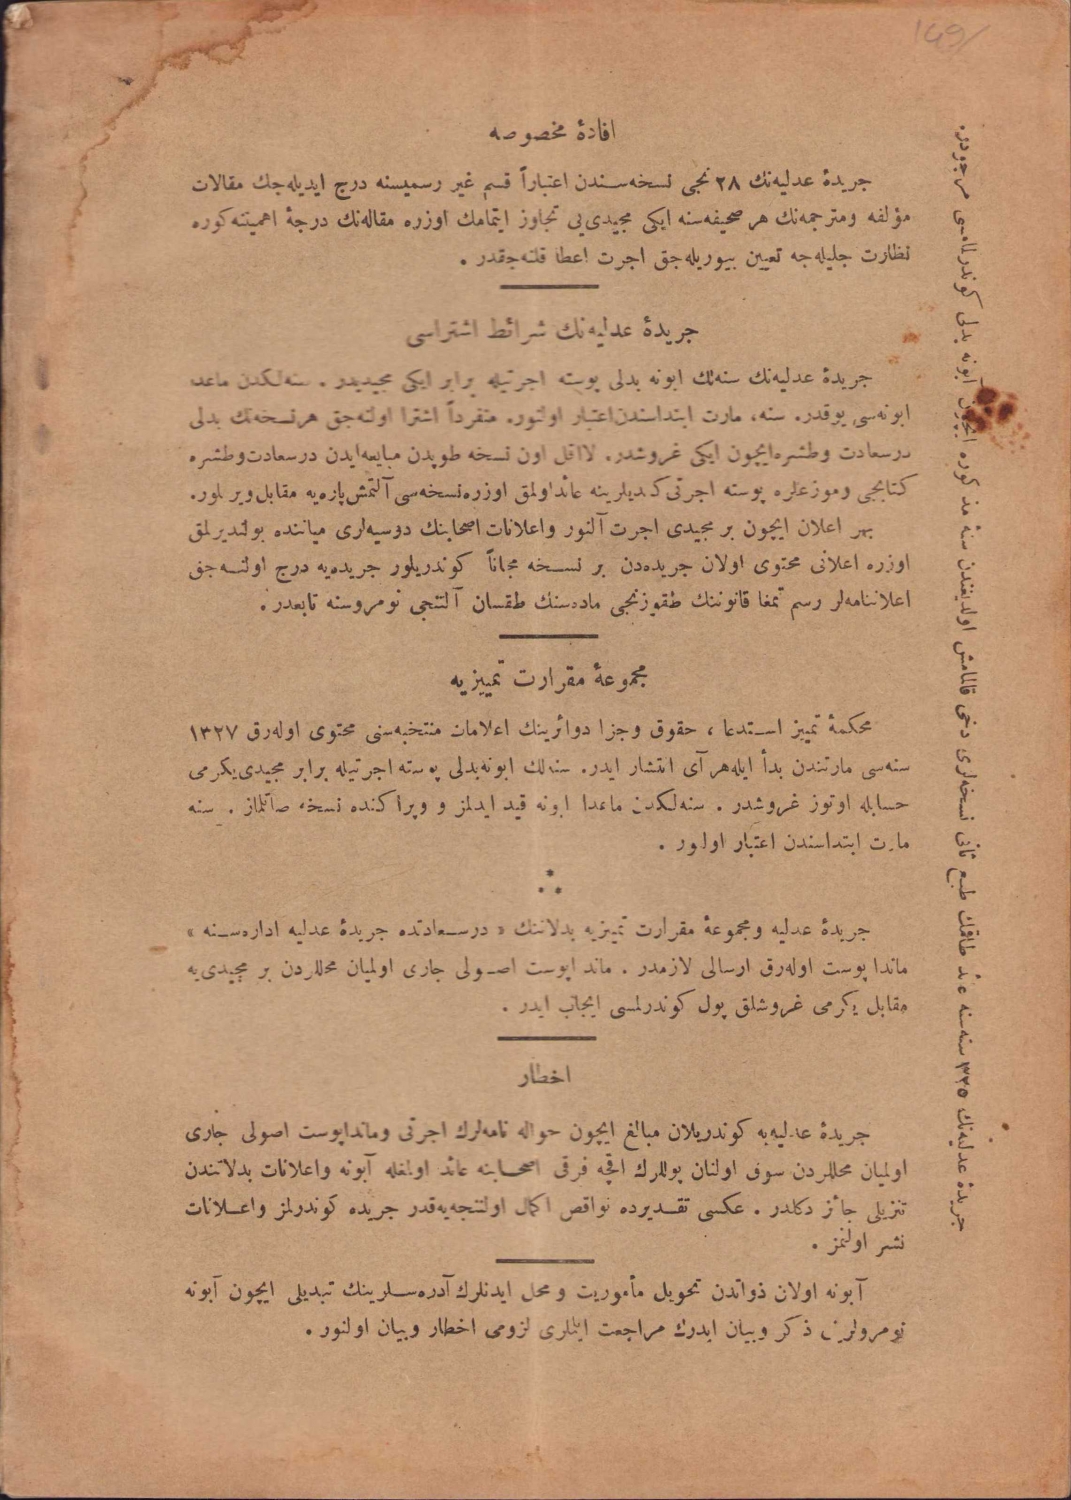 افادۀ مخصوصه
جریدۀ عدلیه‌نك ۲۸ نجی نسخه‌سندن اعتباراً قسم غیر رسمیسنه درج ایدیله‌جك مقالات
مؤلفه ومترجمه‌نك هر صحیفه‌سنه ایکی مجیدی‌یی تجاوز ایتمامك اوزره مقاله‌نك درجۀ اهمیتنه کوره
نظارت جلیله‌جه تعیین بیوریله‌جق اجرت اعطا قلنه‌جقدر .
جریدۀ عدلیه‌نك شرائط اشتراسی
جریدۀ عدلیه‌نك سنه‌لك ابونه بدلی پوسته اجرتیله برابر ایکی مجیدیدر . سنه‌لکدن ماعدا
ابونه‌سی یوقدر. سنه، مارت ابتداسندن اعتبار اولنور. منفرداً اشترا اولنه‌جق هر نسخه‌نك بدلی
درسعادت وطشره‌ایچون ایکی غروشدر. لااقل اون نسخه طوپدن مبایعه‌ایدن درسعادت‌وطشره
کتابجی وموزعلره پوسته اجرتی کندیلرینه عائداولمق اوزره‌نسخه‌سی آلتمش‌پاره‌یه مقابل‌ویریلور.
بهر اعلان ایچون بر مجیدی اجرت آلنور واعلانات اصحابنك دوسیه‌لری میاننده بولندیرلمق
اوزره اعلانی محتوی اولان جریده‌دن بر نسخه مجاناً کوندریلور جریده‌یه درج اولنه‌جق
اعلاننامه‌لر رسم تمغا قانوننك طقوزنجی ماده‌سنك طقسان آلتنجی نومروسنه تابعدر.
مجموعۀ مقرارت تمییزیه
محکمۀ تمییز استدعا ، حقوق وجزا دوائرینك اعلامات منتخبه‌سنی محتوی اوله‌رق ۱۳۲۷
سنه‌سی مارتندن بدأ ایله‌هر آی انتشار ایدر. سنه‌لك ابونه‌بدلی پوسته اجرتیله برابر مجیدی‌یکرمی
حسابله اوتوز غروشدر . سنه‌لکدن ماعدا ابونه قید ایدلمز و پراکنده نسخه صاتلماز . سنه
مارت ابتداسندن اعتبار اولنور .
جریدۀ عدلیه ومجموعۀ مقرارت تمییزیه بدلاتنك « درسعادتده جریدۀ عدلیه اداره‌سنه »
ماندا پوست اوله‌رق ارسالی لازمدر . ماندا پوست اصولی جاری اولمیان محللردن بر مجیدی‌یه
مقابل یکرمی غروشلق پول کوندرلمسی ایجاب ایدر .
اخطار
جریدۀ عدلیه‌یه کوندریلان مبالغ ایچون حواله نامه‌لرك اجرتی وماندا‌پوست اصولی جاری
اولمیان محللردن سوق اولنان پوللرك اقچه فرقی اصحابنه عائد اولمغله آبونه واعلانات بدلاتندن
تنزیلی جائز دکلدر . عکسی تقدیرده نواقص اکمال اولنجه‌یه‌قدر جریده کوندرلمز واعلانات
نشر اولنمز .
آبونه اولان ذواتدن تحویل مأموریت ومحل ایدنلرك آدره‌سلرینك تبدیلی ایچون آبونه
نومرولرینی ذکر وبیان ایدرك مراجعت ایلملری لزومی اخطار وبیان اولنور .
جریدۀ عدلیه‌نك ۳۲۵ سنه‌سنه عائد طاقمك طبع ثانی نسخه‌لری دخی قالمامش اولدیغندن سنۀ مذکوره ایچون آبونه بدلی کوندرلمامسی مرجودر.
149/